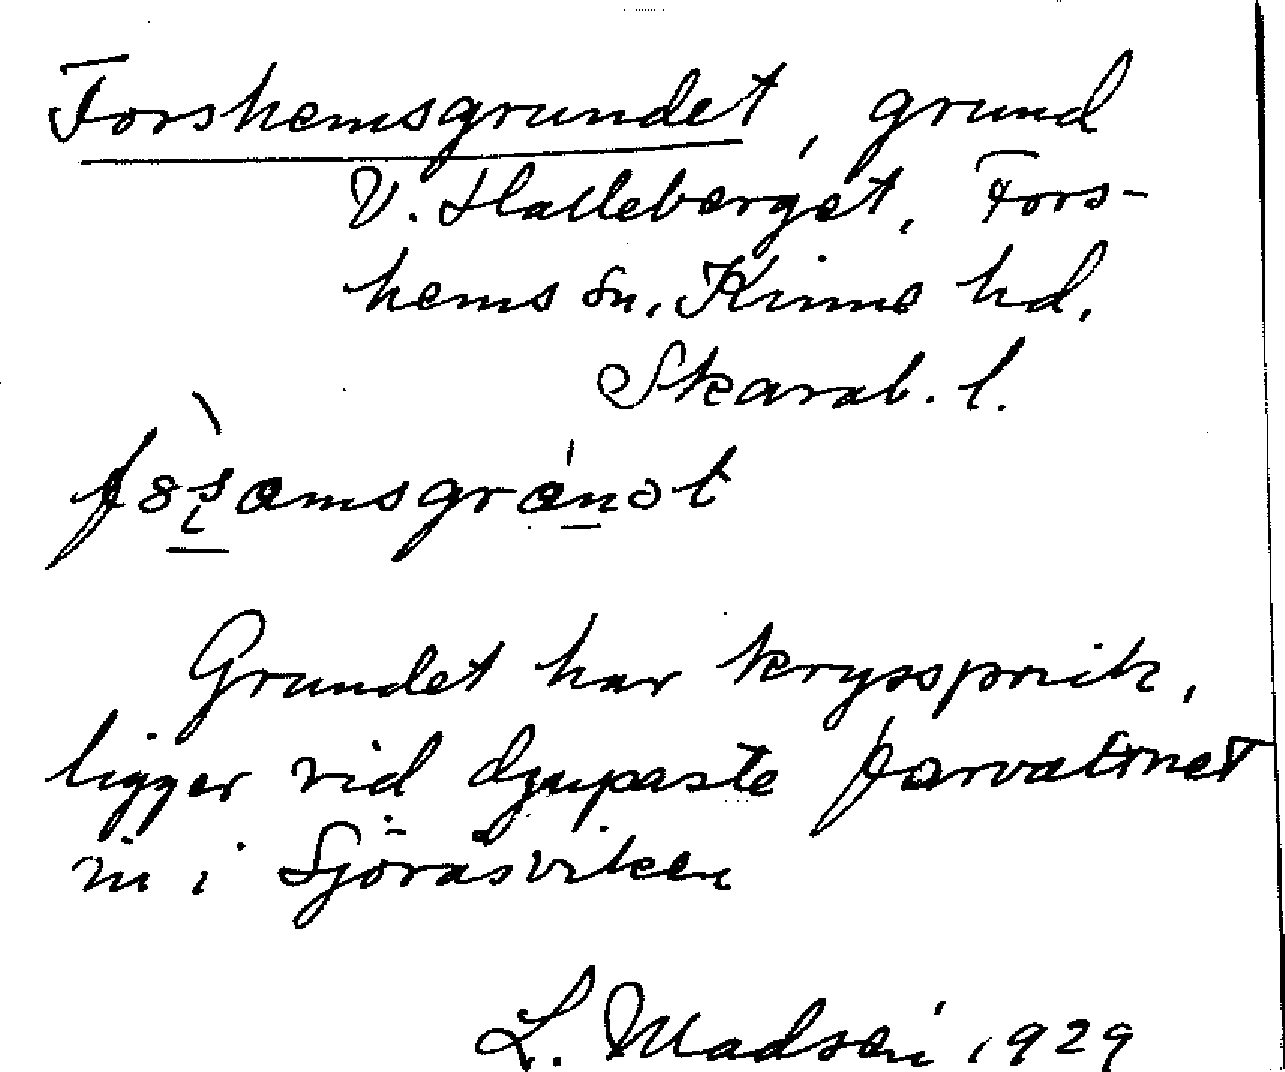 Forshemsgrundet, grund
V. Halleberget, Fors-
hems sn, Kinne hd,
Skarab. l.
Grundet har kryssprick,
ligger vid djupaste farvattnet
in i Sjöråsviken
L. Madsén, 1929